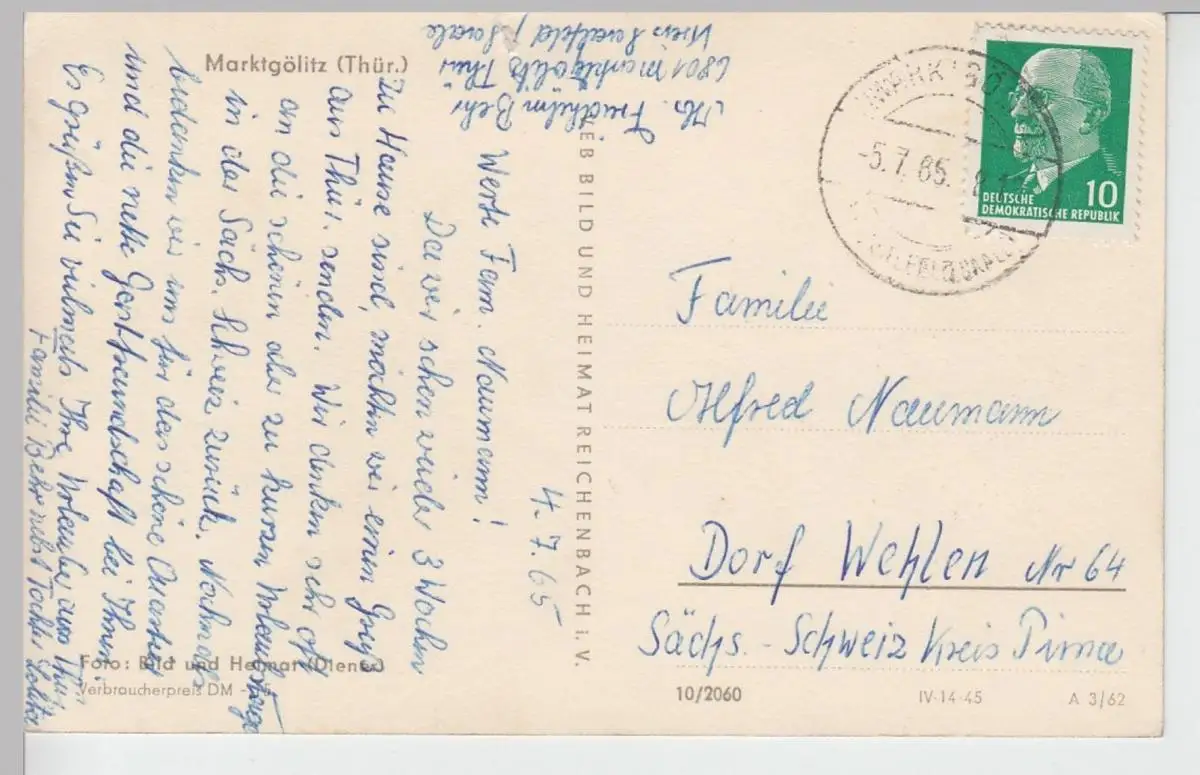 Marktgölitz (Thür.)
Abs. Friedhelm Behr
6801 Marktgölitz Thür
Kreis Saalfeld / Saale
4. 7. 65
Werte Fam. Naumann!
Da wir schon wieder 3 Wochen
zu Hause sind, möchten wir einen Gruß
aus Thür. senden. Wir denken sehr oft
an die schönen aber zu kurzen Urlaubstage
in der Sächs. Schweiz zurück. Nochmals
bedanken wir uns für das schöne Quartier
und die nette Gastfreundschaft bei Ihnen
Es grüßen Sie vielmals Ihre Urlauber aus Thür.
Familie Behr nebst Tochter
Foto: Bild und Heimat (Diener)
Verbraucherpreis DM
VEB BILD UND HEIMAT REICHENBACH i. V.
-5.7.65.
DEUTSCHE
DEMOKRATISCHE REPUBLIK
10
Familie
Alfred Naumann
Dorf Wehlen Nr 64
Sächs. - Schweiz Kreis Pirna
10/2060
IV-14-45
A 3/62